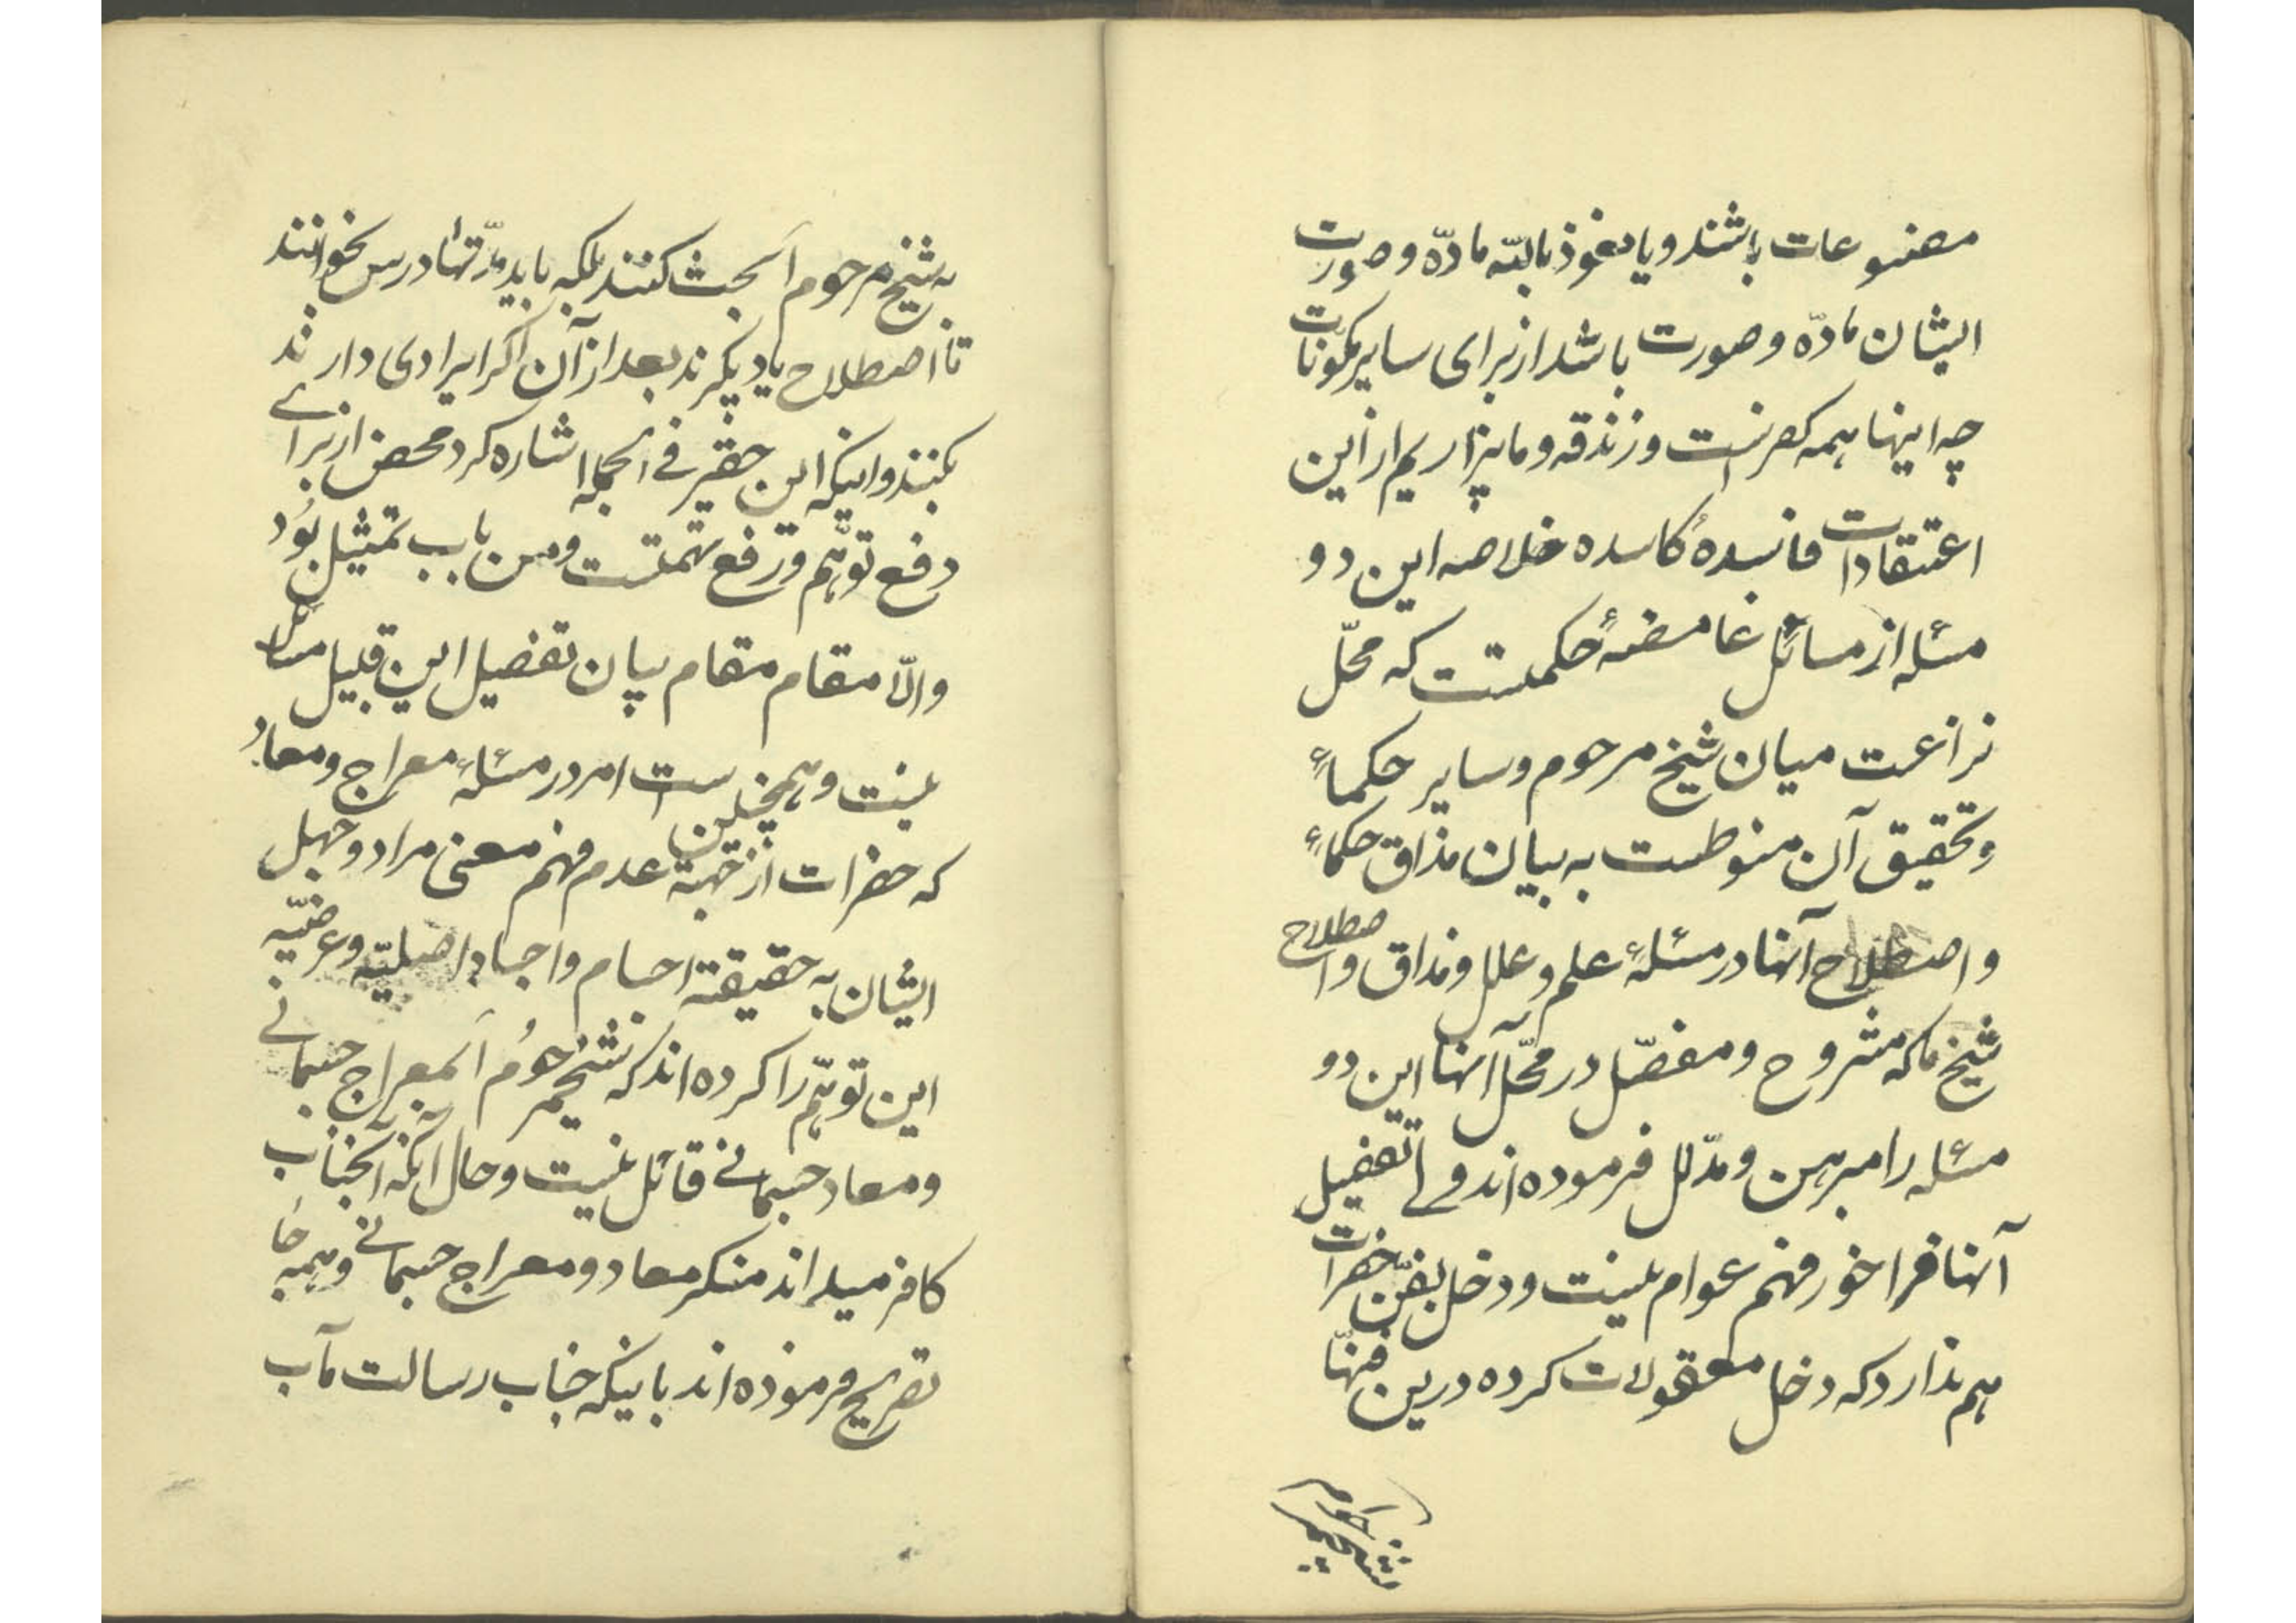 مصنوعات باشند و یا نعوذ بالله مادّه و صورت
ایشان مادّه و صورت باشد از برای سایر مکوّنات
چه اینها همه کفرست و زندقه و ما بیزاریم از این
اعتقادات فاسدهٔ کاسده خلاصه این دو
مسئله از مسائل غامضهٔ حکمتست که محلّ
نزاعست میان شیخ مرحوم و سایر حکماء
و تحقیق آن منوطست به بیان مذاق حکماء
و اصطلاح آنها در مسئلهٔ علم و علل و مذاق و اصطلاح
شیخ ما که مشروح و مفصّل در محلّ آنها این دو
مسئله را مبرهن و مدّلل فرموده اند ولی تفصیل
آنها فراخور فهم عوام نیست و دخل بفنّ حضرات
هم ندارد که دخل معقولات کرده درین فنها
به شیخ مرحوم اَع بحث کنند بلکه باید مدّتها درس بخوانند
تا اصطلاح یاد بگیرند بعد از آن اگر ایرادی دارند
بکنند و اینکه این حقیر فی الجمله اشاره کرد محض از برای
دفع توهّم و رفع تهمتست و من باب تمثیل بود
والّا مقام مقام بیان تفصیل این قبیل مسائل
نیست و همچنین است امر در مسئلهٔ معراج و معاد
که حضرات از جهة عدم فهم معنی مراد و جهل
ایشان به حقیقة اجسام و اجساد اصلیّه و عرضیّه
این توهّم را کرده اند که شیخ مرحوم اَع بمعراج جسمانی
و معاد جسمانی قائل نیست و حال آنکه آنجناب
کافر میداند منکر معاد و معراج جسمانی و همه جا
تصریح فرموده اند باینکه جناب رسالت مآب